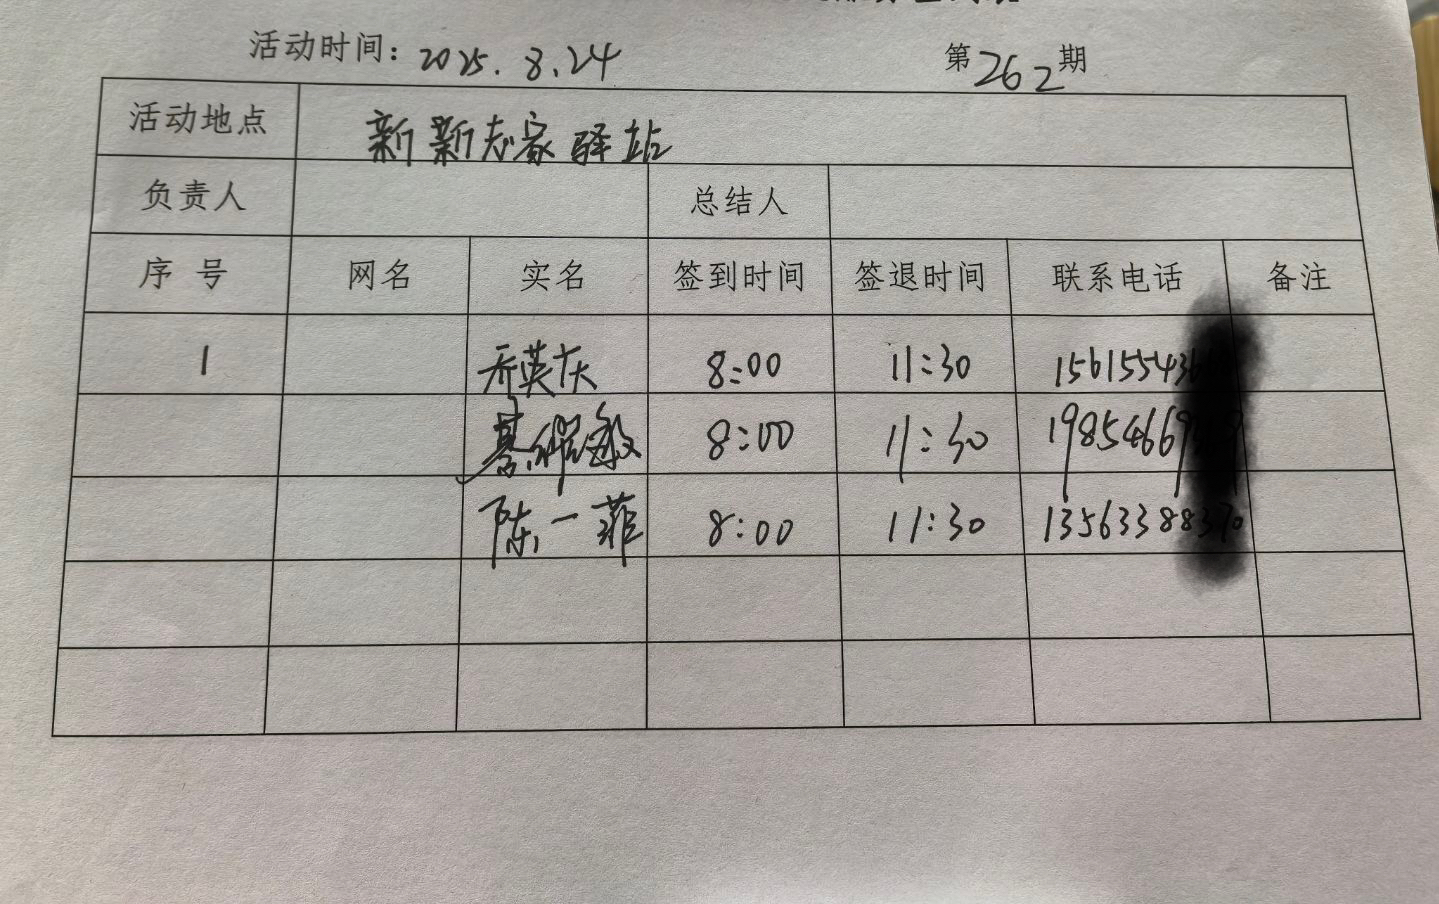 活动时间：2025.8.24 第262期
活动地点 新新志家驿站
负责人 总结人
序号 网名 实名 签到时间 签退时间 联系电话 备注
1 乔英庆 8:00 11:30 15615543
8:00 11:30 1985466
陈一菲 8:00 11:30 13563388